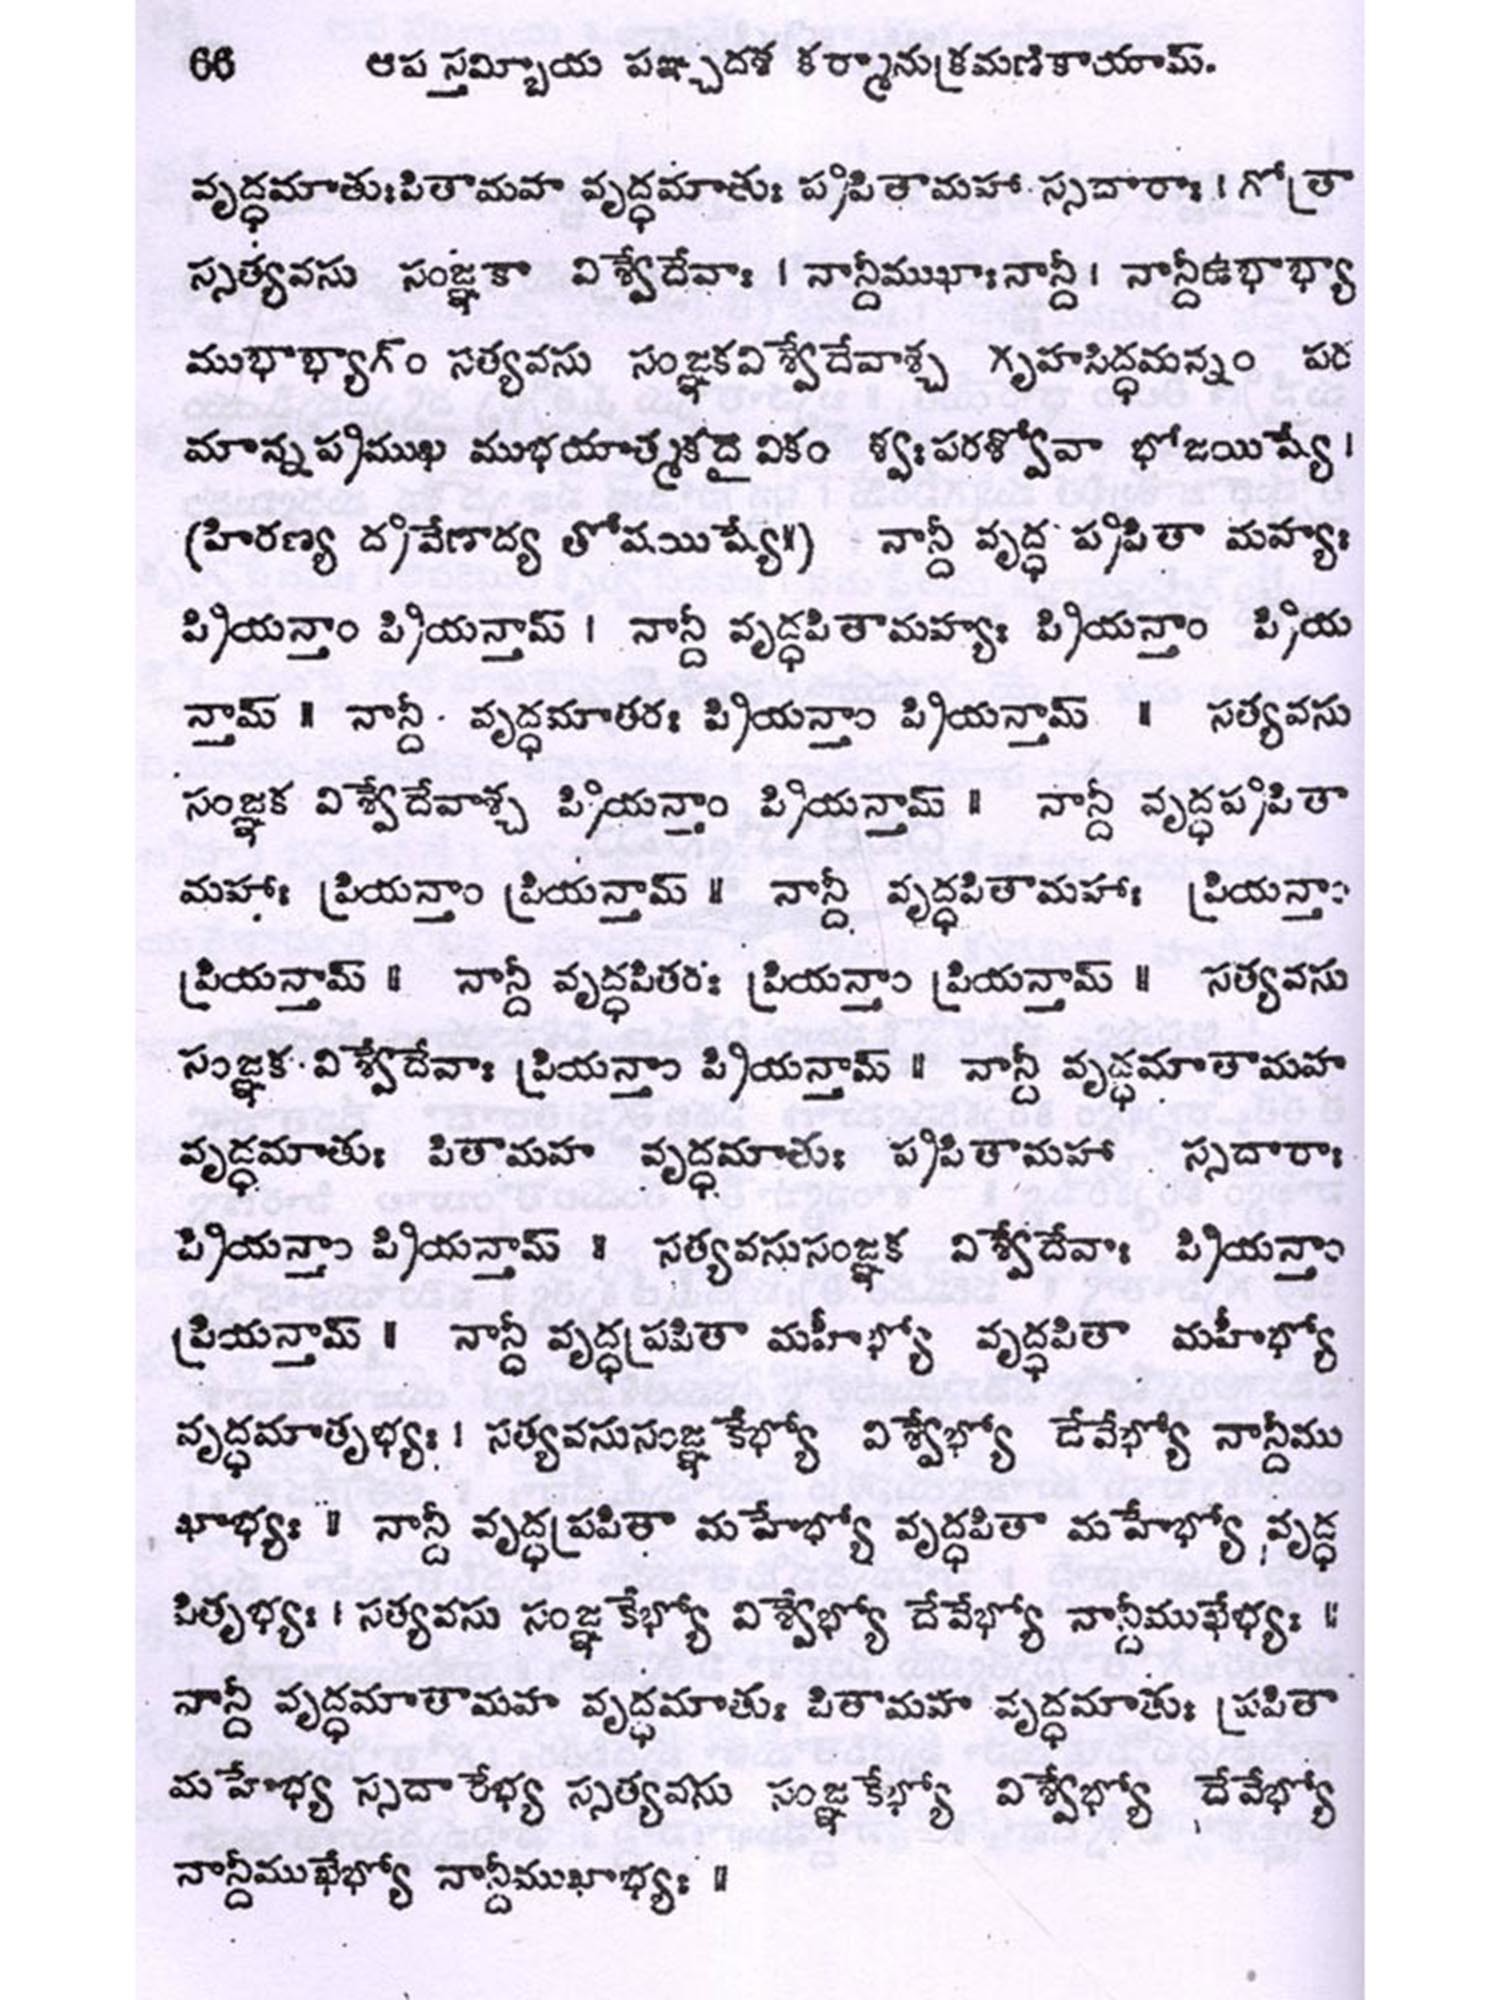 66 ఆప స్తమ్బీయ పఞ్చదశ కర్మానుక్రమణికాయామ్.
వృద్ధమాతుఃపితామహ వృద్ధమాతుః ప్రపితామహా స్సదారాః । గోత్రా
స్సత్యవసు సంజ్ఞకా విశ్వేదేవాః । నాన్దీముఖాః నాన్దీ । నాన్దీఉభాభ్యా
ముభాభ్యాగ్ం సత్యవసు సంజ్ఞకవిశ్వేదేవాశ్చ గృహసిద్ధమన్నం పర
మాన్నప్రముఖ ముభయాత్మకదైవికం శ్వఃపరశ్వోవా భోజయిష్యే ।
(హిరణ్య ద్రవేణాద్య తోషయిష్యే॥) నాన్దీ వృద్ధ ప్రపితా మహ్యః
ప్రియన్తాం ప్రియన్తామ్ । నాన్దీ వృద్ధపితామహ్యః ప్రియన్తాం ప్రియ
న్తామ్ ॥ నాన్దీ వృద్ధమాతరః ప్రియన్తాం ప్రియన్తామ్ ॥ సత్యవసు
సంజ్ఞక విశ్వేదేవాశ్చ ప్రియన్తాం ప్రియన్తామ్ ॥ నాన్దీ వృద్ధప్రపితా
మహాః ప్రియన్తాం ప్రియన్తామ్ ॥ నాన్దీ వృద్ధపితామహాః ప్రియన్తాం
ప్రియన్తామ్ ॥ నాన్దీ వృద్ధపితరః ప్రియన్తాం ప్రియన్తామ్ ॥ సత్యవసు
సంజ్ఞక విశ్వేదేవాః ప్రియన్తాం ప్రియన్తామ్ ॥ నాన్దీ వృద్ధమాతామహ
వృద్ధమాతుః పితామహ వృద్ధమాతుః ప్రపితామహా స్సదారాః
ప్రియన్తాం ప్రియన్తామ్ ॥ సత్యవసుసంజ్ఞక విశ్వేదేవాః ప్రియన్తాం
ప్రియన్తామ్ ॥ నాన్దీ వృద్ధప్రపితా మహీభ్యో వృద్ధపితా మహీభ్యో
వృద్ధమాతృభ్యః । సత్యవసుసంజ్ఞకేభ్యో విశ్వేభ్యో దేవేభ్యో నాన్దీము
ఖాభ్యః ॥ నాన్దీ వృద్ధప్రపితా మహేభ్యో వృద్ధపితా మహేభ్యో వృద్ధ
పితృభ్యః । సత్యవసు సంజ్ఞకేభ్యో విశ్వేభ్యో దేవేభ్యో నాన్దీముఖేభ్యః ॥
నాన్దీ వృద్ధమాతామహ వృద్ధమాతుః పితామహ వృద్ధమాతుః ప్రపితా
మహేభ్య స్సదారేభ్య స్సత్యవసు సంజ్ఞకేభ్యో విశ్వేభ్యో దేవేభ్యో
నాన్దీముఖేభ్యో నాన్దీముఖాభ్యః ॥